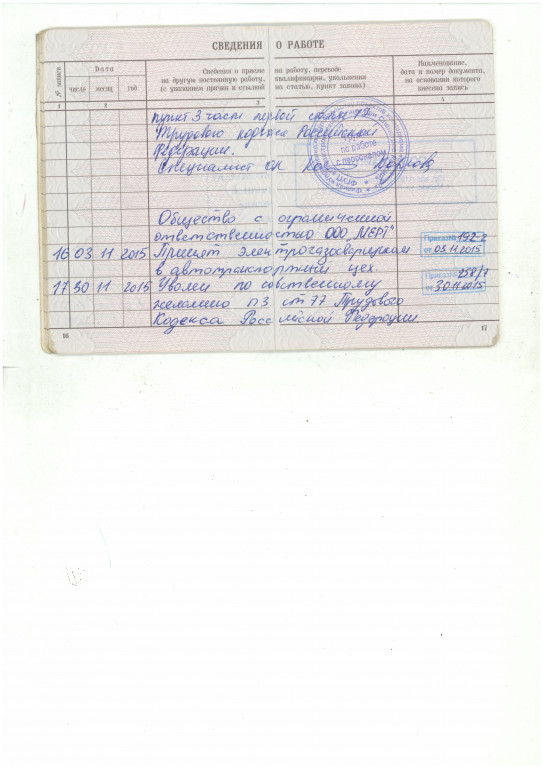 СВЕДЕНИЯ О РАБОТЕ
№ записи
Дата
Сведения о приеме на работу, переводе
на другую постоянную работу, квалификации, увольнении
(с указанием причин и ссылкой на статью, пункт закона)
Наименование,
дата и номер документа,
на основании которого
внесена запись
число месяц год
1 2 3 4
пункт 3 части первой статьи 77
Трудового кодекса Российской
Федерации.
Специалист ОК
по работе
с персоналом
Общество с ограниченной
ответственностью ООО "МЕРТ"
16 03 11 2015 Принят электрогазосварщиком
в автотранспортный цех.
Приказ 192-л
от 03.11.2015
17 30 11 2015 Уволен по собственному
желанию п3 ст 77 Трудового
Кодекса Российской Федерации
Приказ 258/1
от 30.11.2015
16 17